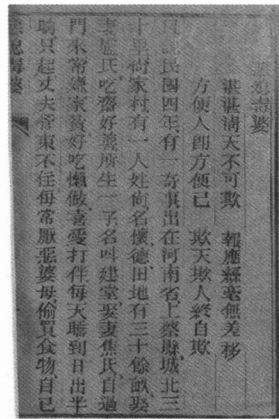 湛湛清天不可欺　報應絲毫無差移
方便人卽方便己　欺天欺人終自欺
民國四年有一奇事出在河南省上蔡縣城北三
十里尚家村有一人姓尚名懷德田地有三十餘畝娶
妻盧氏吃齋好善所生一子名呌建堂娶妻焦氏自過
門來常嫌家貧好吃懶做喜愛打伴每天睡到日出半
晌只起丈夫管束不任每常厭惡婆母偷買食物自己